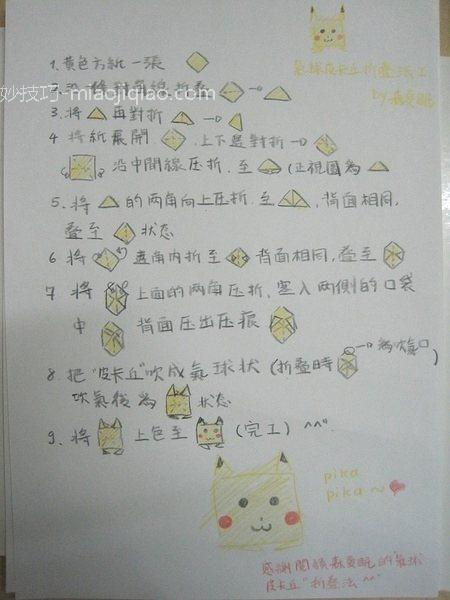 氣球皮卡丘折疊法工
by 森夏眠
1. 黃色方紙一張
妙技巧-miaojiqiao.com
2. 沿 對角線 折疊
3. 將 再對折
4 將紙展開 , 上下邊對折
沿中間線压折, 至 (正視图為
5. 將 的两角向上压折, 至 , 背面相同,
叠至 状态
6 將 邊角内折至 背面相同, 叠至
7 將 上面的两角压折, 塞入两側的口袋
中 背面压出压痕
8. 把"皮卡丘"吹成氣球狀 (折叠時 為吹氣口)
吹氣後為 状态
9. 將 上色至 (完工) ^^".
pika
pika~
感謝閱讀森夏眠的"氣球
皮卡丘"折叠法 ^^